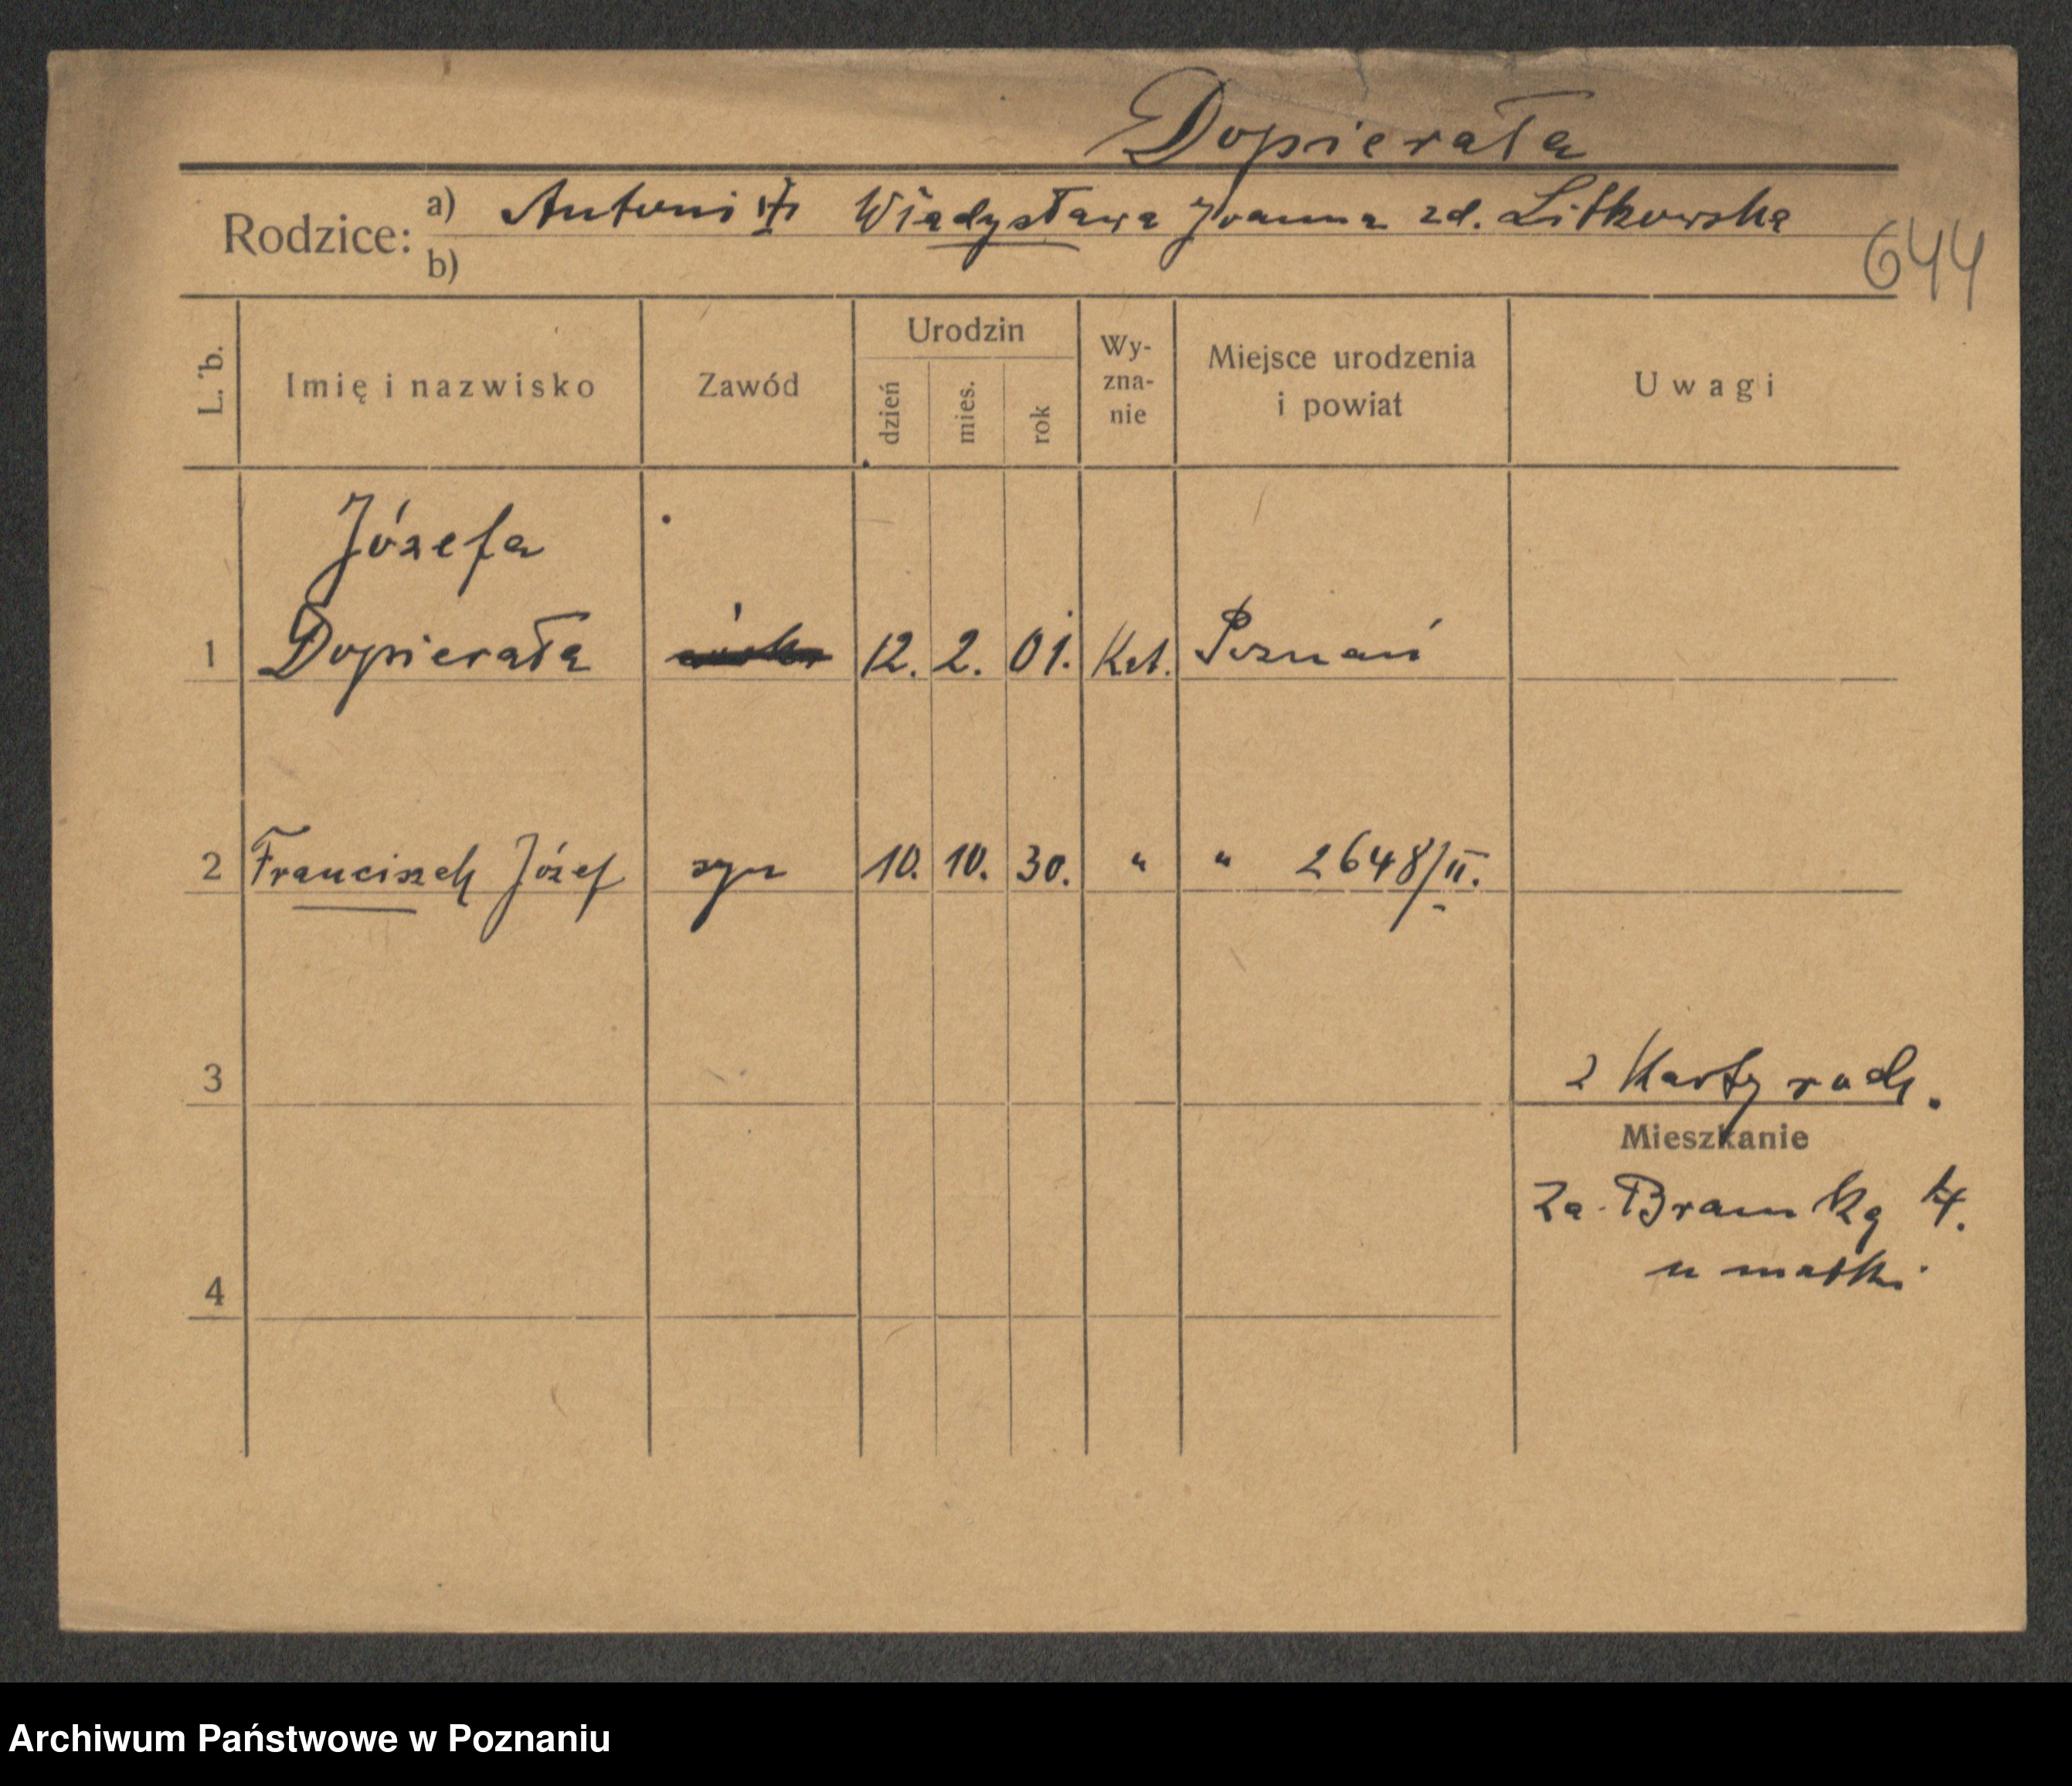 Dopierała
Rodzice: a) Antoni Władysława Joanna zd. Litkowska
b)
644
L. b. Imię i nazwisko Zawód Urodzin dzień mies. rok Wy-zna-nie Miejsce urodzenia i powiat Uwagi
Józefa
1 Dopierała 12. 2. 01. Kat. Poznań
2 Franciszek Józef syn 10. 10. 30. " " 2648/II.
3 2 Karty rodz.
Mieszkanie
Za Bramką 4.
4 u matki
Archiwum Państwowe w Poznaniu